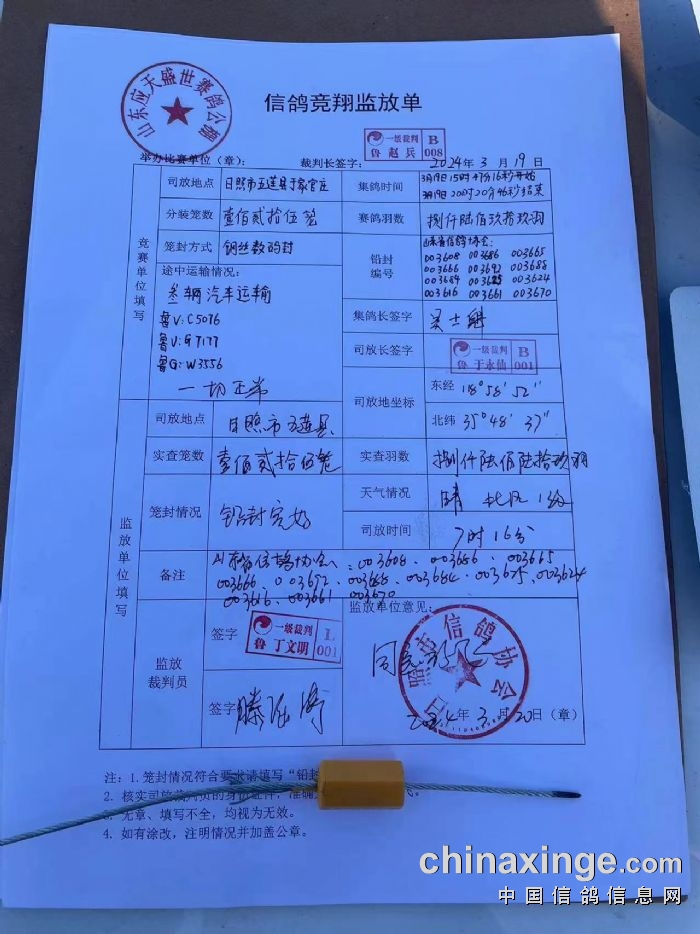 信鸽竞翔监放单
山东应天盛世赛鸽公棚
一级裁判 B
鲁 赵兵 008
举办比赛单位（章）： 裁判长签字： 2024年3月19日
竞赛单位填写
司放地点 日照市五莲县于家官庄 集鸽时间 3月19日15时47分16秒开始
3月19日20时20分46秒结束
分装笼数 壹佰贰拾伍笼 赛鸽羽数 捌仟陆佰玖拾玖羽
笼封方式 钢丝数码封 铅封编号 山东省信鸽协会:
003608 003686 003665
003666 003692 003688
003684 003675 003624
003616 003661 003670
途中运输情况：
叁辆汽车运输
鲁V:C5076
鲁V:G7177
鲁G:W3556
一切正常
集鸽长签字 吴士魁
司放长签字 一级裁判 B
鲁 于永仙 001
司放地坐标 东经 118°58′52″
北纬 35°48′37″
监放单位填写
司放地点 日照市五莲县
实查笼数 壹佰贰拾伍笼 实查羽数 捌仟陆佰陆拾玖羽
笼封情况 铅封完好 天气情况 晴 北风1级
司放时间 7时16分
备注 山东省信鸽协会:003608、003686、003665
003666、003692、003688、003684、003675、003624
003616、003661、003670
监放裁判员
签字 一级裁判 L
鲁 丁文明 001
签字
监放单位意见：
日照市信鸽协会
2024年3月20日（章）
注：1. 笼封情况符合要求请填写“铅封
2. 核实司放裁判员的身份证件，准确
3. 无章、填写不全，均视为无效。
4. 如有涂改，注明情况并加盖公章。
chinaxinge.com
中国信鸽信息网